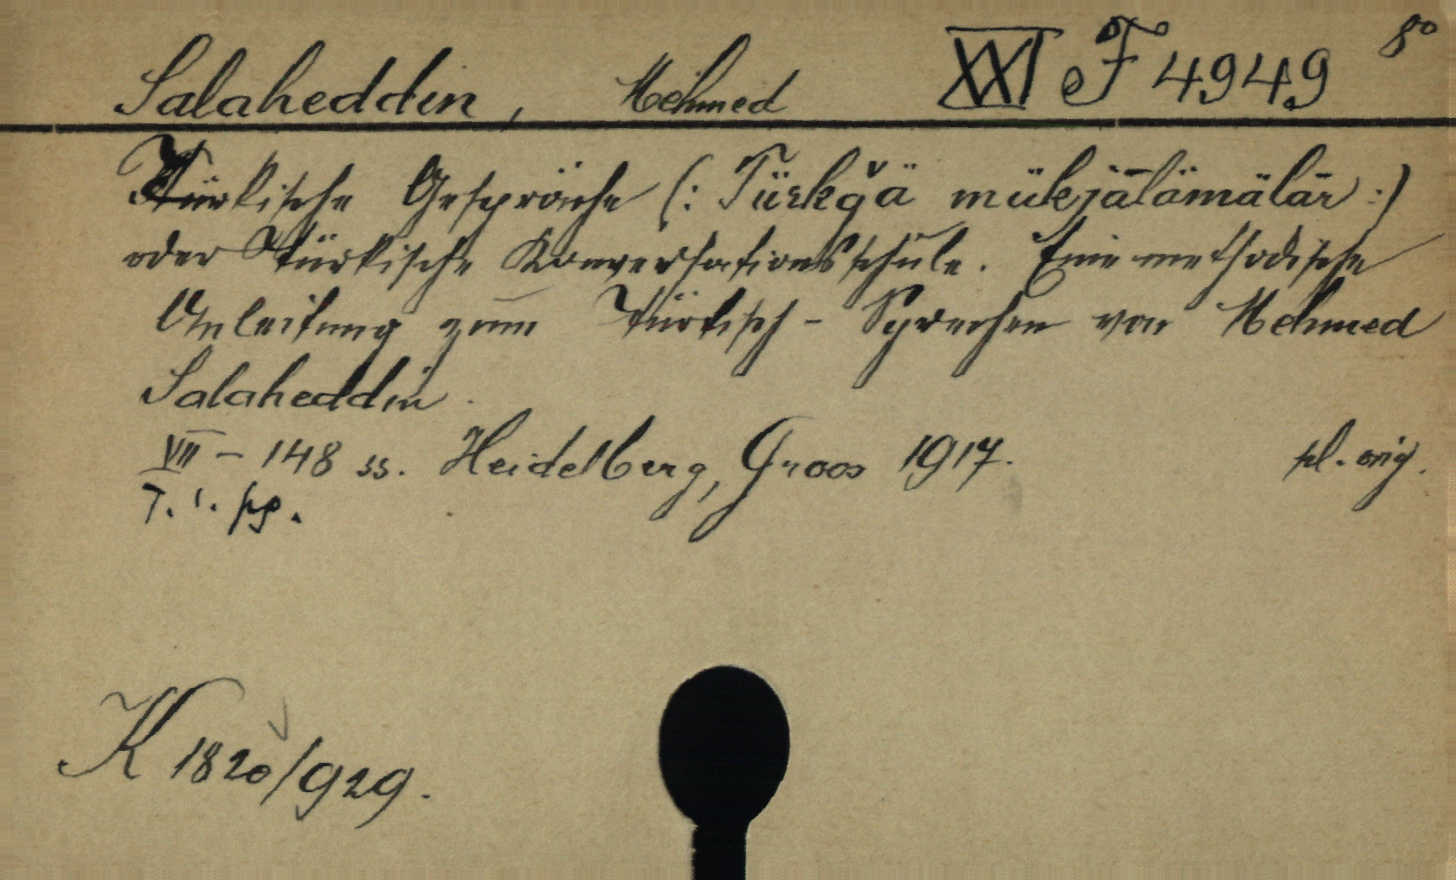 Salaheddin, Mehmed XXI eF 4949 8°
Türkische Gespräche (: Türkǧä mükjālämälär :)
oder Türkische Konversationsschule. Eine methodische
Anleitung zum Türkisch-Sprechen von Mehmed
Salaheddin.
VII - 148 ss. Heidelberg, Groos 1917. pl. orig.
K 1820/929.